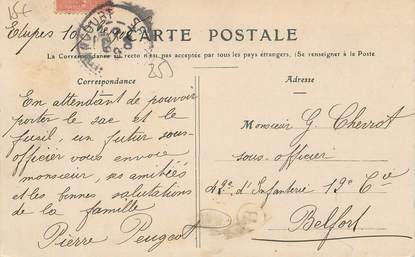 15€
Etupes 10
CARTE POSTALE
La Correspondance au recto n'est pas acceptée par tous les pays étrangers, (Se renseigner à la Poste
25J
Correspondance
En attendant de pouvoir
porter le sac et le
fusil, un futur sous-
officier vous envoie
monsieur, ses amitiés
et les bonnes salutations
de la famille
Pierre Peugeot
Adresse
Monsieur G. Chevrot
sous-officier
42e. d'Infanterie 12e Cie
Belfort